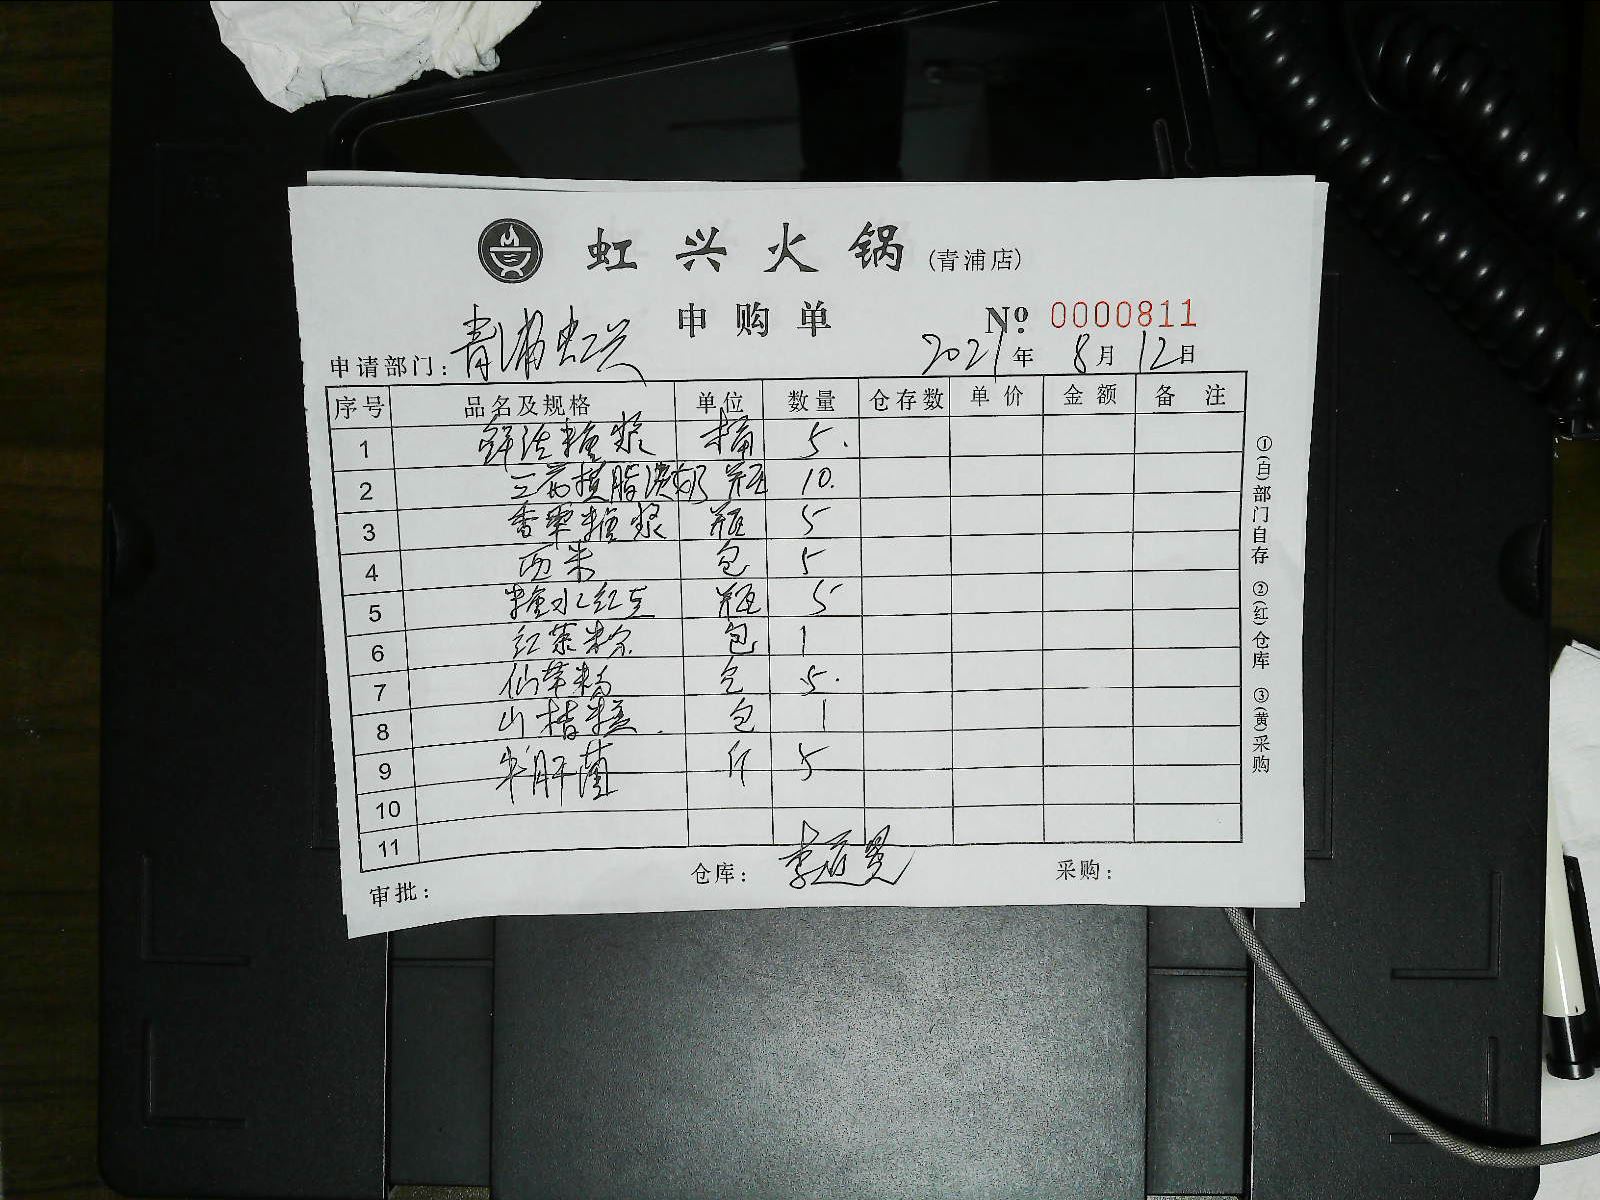 虹兴火锅(青浦店)
申购单 № 0000811
申请部门: 青浦虹兴 2021年 8月 12日
序号 品名及规格 单位 数量 仓存数 单价 金额 备注
1 鲜活糖浆 桶 5.
2 三花植脂淡奶 瓶 10.
3 香草糖浆 瓶 5
4 西米 包 5
5 糖水红豆 瓶 5
6 红茶粉 包 1
7 仙草粉 包 5.
8 山楂糕. 包 1
9 牛肝菌 斤 5
10
11
审批: 仓库: 采购:
①(白)部门自存 ②(红)仓库 ③(黄)采购